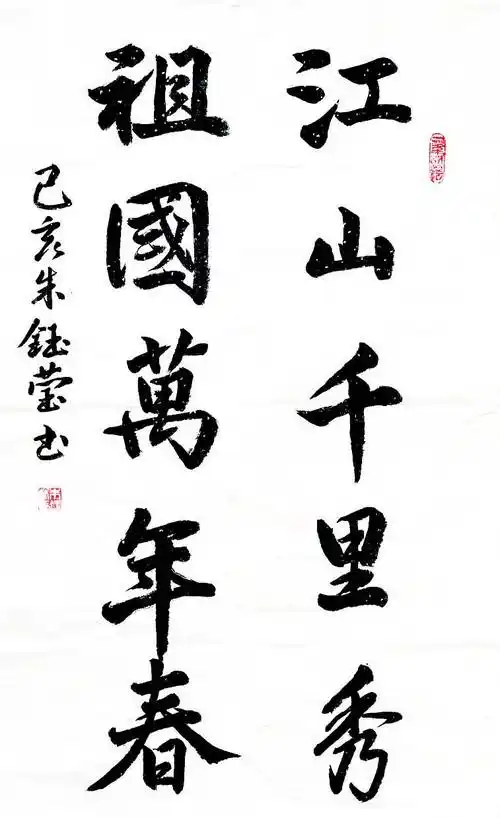 江山千里秀
祖國萬年春
己亥朱鈺瑩书